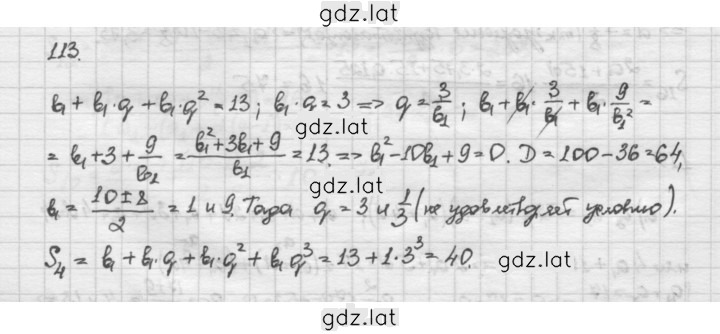 gdz.lat
113.
b₁ + b₁·q + b₁·q² = 13; b₁·q = 3 => q = 3/b₁; b₁ + b₁·3/b₁ + b₁·9/b₁² =
gdz.lat
= b₁ + 3 + 9/b₁ = (b₁² + 3b₁ + 9)/b₁ = 13. => b₁² - 10b₁ + 9 = 0. D = 100 - 36 = 64,
b₁ = (10 ± 8)/2 = 1 и 9. Тогда q = 3 и 1/3 (не удовлетворяет условию).
S₄ = b₁ + b₁·q + b₁·q² + b₁q³ = 13 + 1·3³ = 40.
gdz.lat
gdz.lat